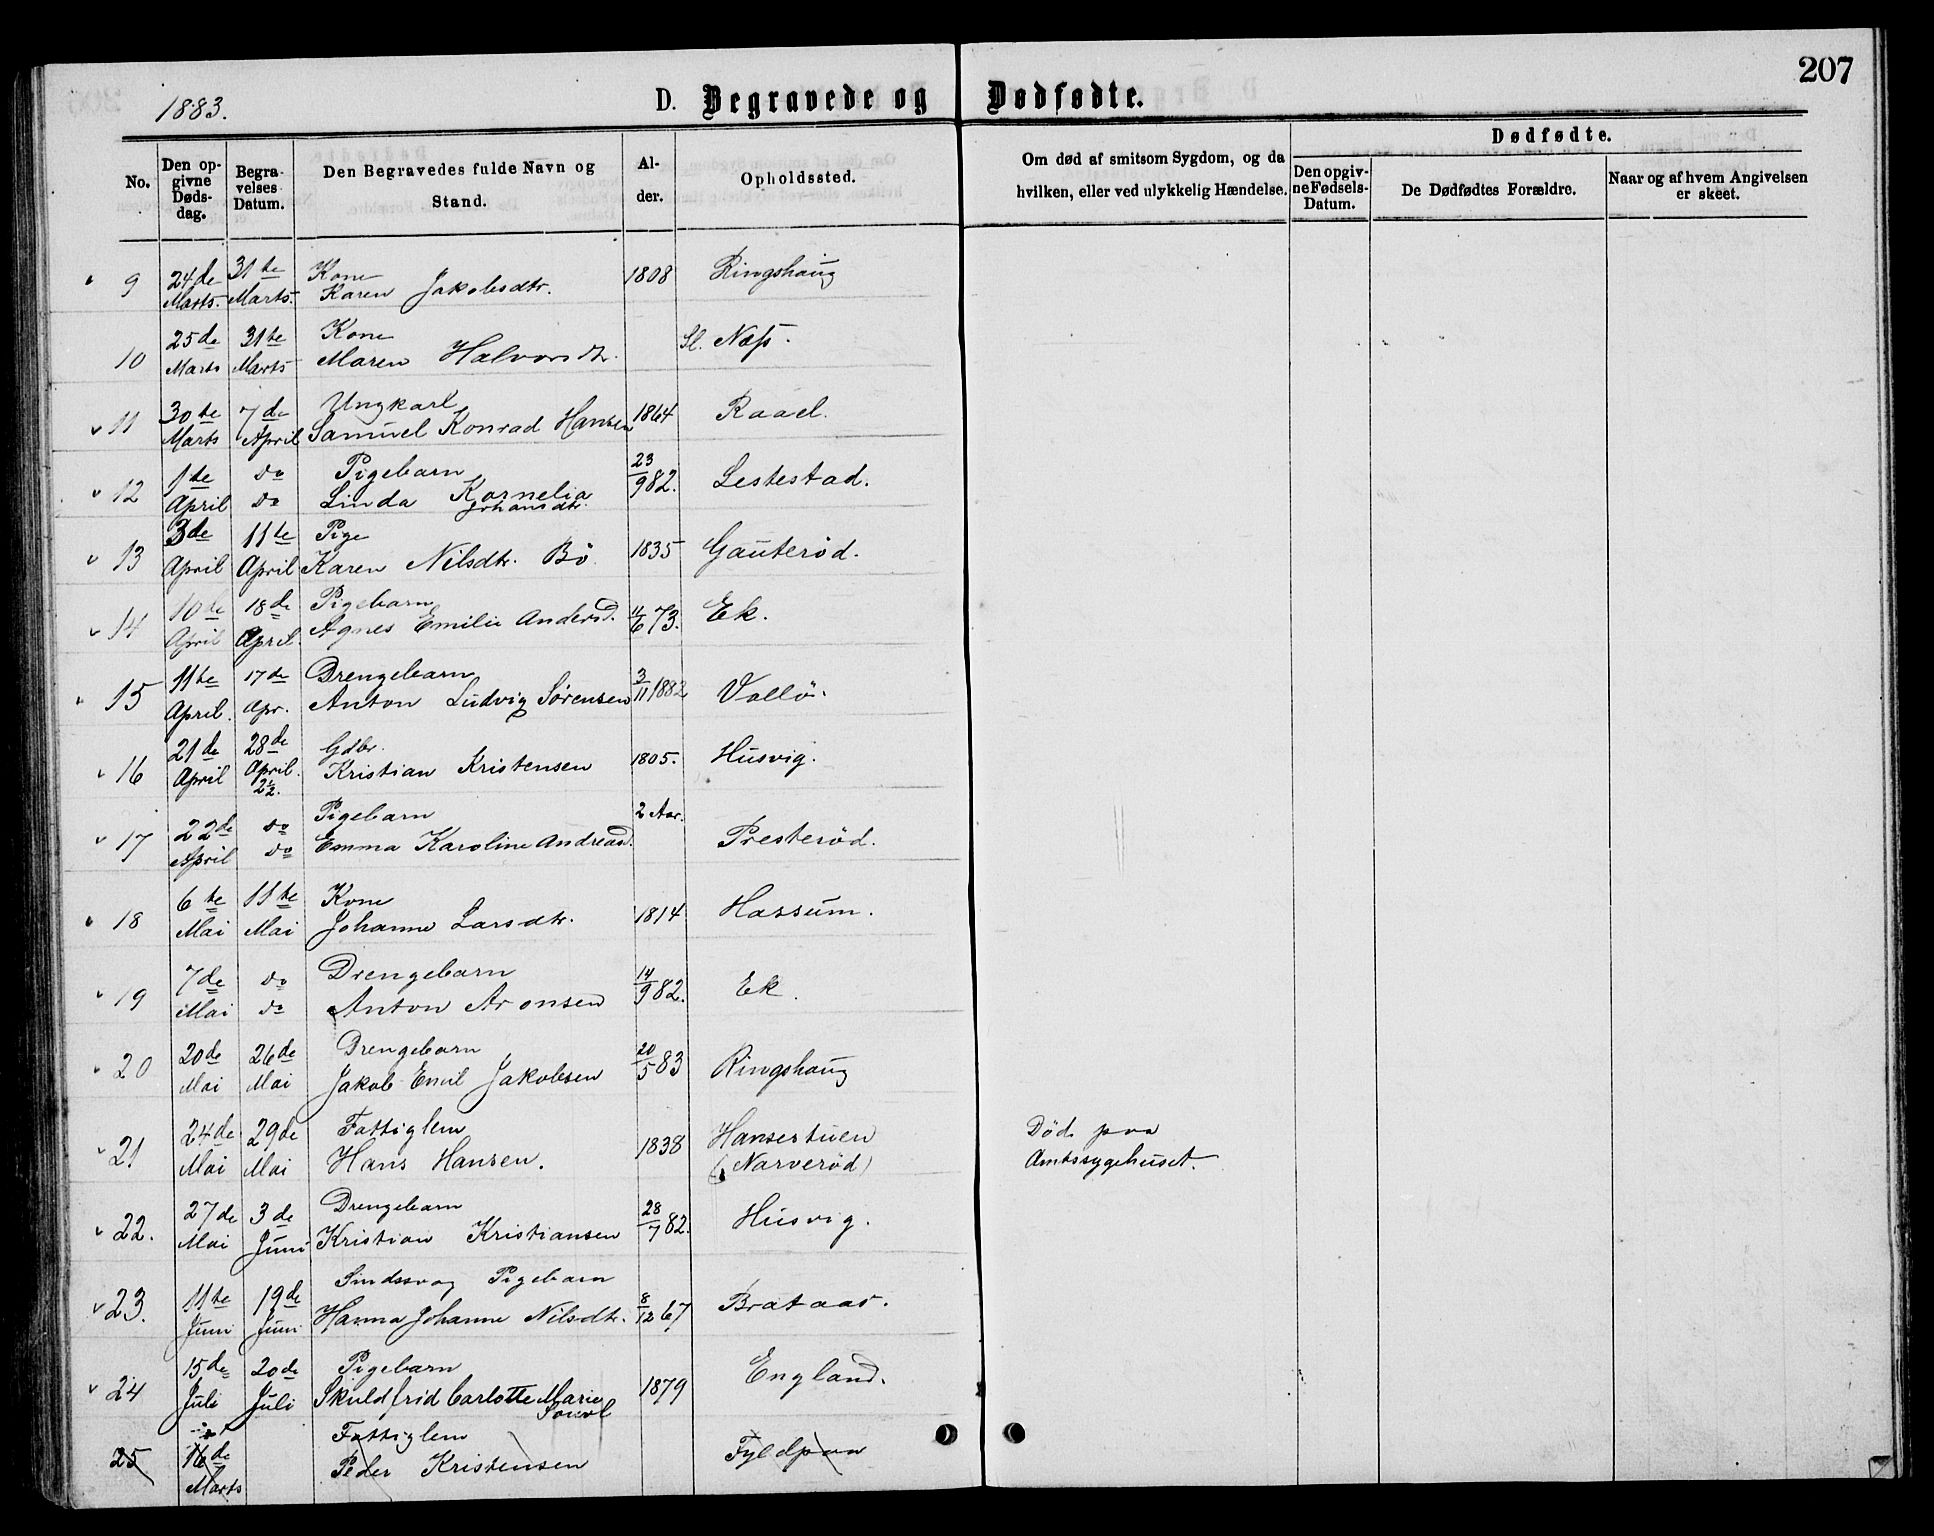 207
1883.
D. Begravede og Dødfødte.
No.
Den opgivne Dødsdag.
Begravelses Datum.
Den Begravedes fulde Navn og Stand.
Alder.
Opholdssted.
Om død af smitsom Sygdom, og da hvilken, eller ved ulykkelig Hændelse.
Dødfødte.
Den opgivne Fødsels-Datum.
De Dødfødtes Forældre.
Naar og af hvem Angivelsen er skeet.
9 24de Marts. 31te Marts. Kone Karen Jakobsdtr. 1808 Ringshaug
10 25de Marts 31te Marts Kone Maren Halvorsdtr. Sl. Næss.
11 30te Marts 7de April Ungkarl Samuel Konrad Hansen 1864 Raael.
12 1te April do do Pigebarn Linda Kornelia Johansdtr. 23/9 82. Lestestad.
13 3de April 11te April Pige Karen Nilsdtr. Bö 1835 Gauteröd.
14 10de April 18de April. Pigebarn Agnes Emilie Andersd. 11/6 73. Ek.
15 11te April. 17de Apr. Drengebarn Anton Ludvig Sörensen 3/11 1882 Vallö.
16 21de April 28de April. Gdbr. Kristian Kristensen 1805. Husvig.
17 22de April do do Pigebarn Emma Karoline Andreasd. 2 Aar. Presteröd.
18 6te Mai 11te Mai Kone Johanne Larsdtr. 1814 Hassum.
19 7de Mai do do Drengebarn Anton Aronsen 14/9 82. Ek.
20 20de Mai 26de Mai Drengebarn Jakob Emil Jakobsen 20/5 83 Ringshaug
21 24de Mai 29de Mai Fattiglem Hans Hansen. 1838 Hansestuen (Narveröd) Död paa Amtssygehuset.
22. 27de Mai 3de Juni Drengebarn Kristian Kristiansen 28/7 82. Husvig.
23. 11te Juni 19de Juni Sindssvag Pigebarn Hanna Johanne Nilsdtr. 8/12 67 Brataas.
24 15de Juli 20de Juli Pigebarn Skuldfrid Carlotte Marie 1879 England.
25 16de Marts Fattiglem Peder Kristensen Fyldpaa